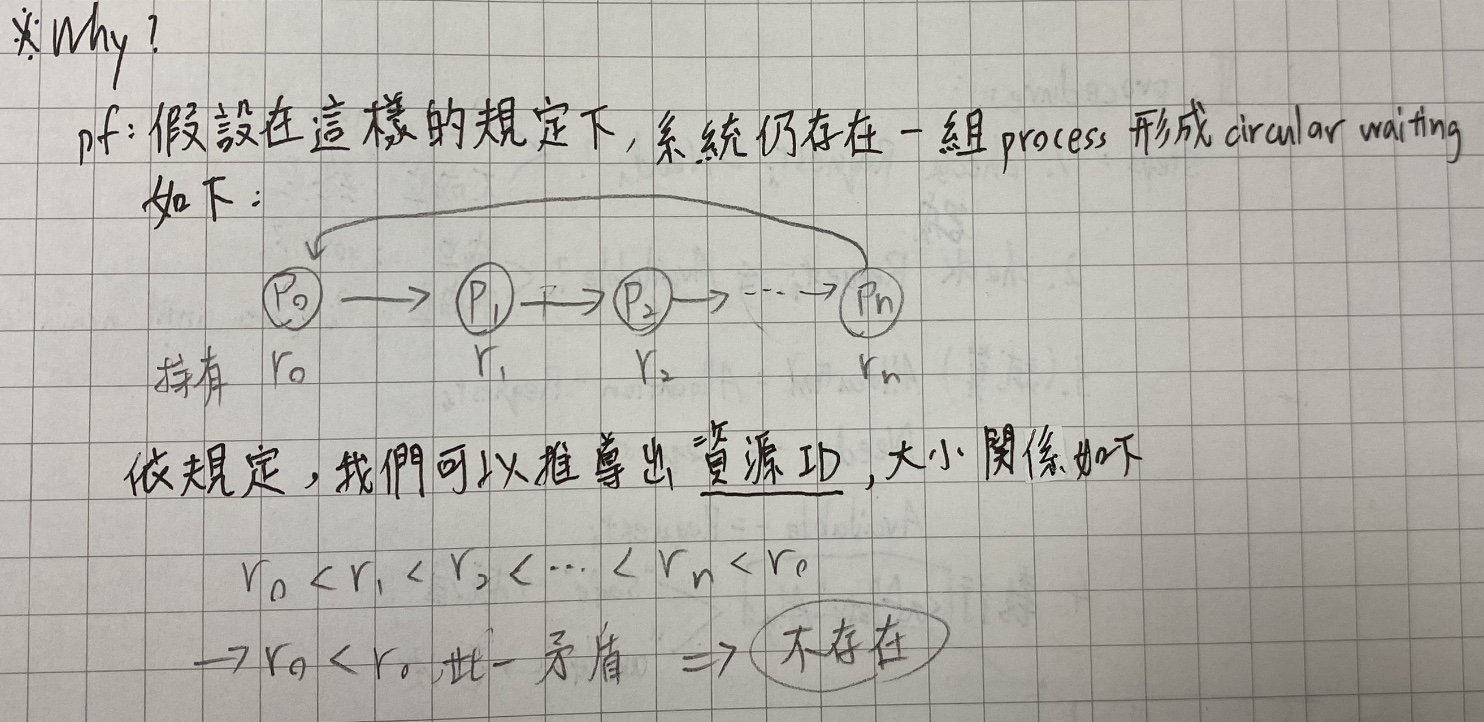 ※ Why?
pf: 假設在這樣的規定下, 系統仍存在一組 process 形成 circular waiting
如下:
P0 → P1 → P2 → ... → Pn
持有 r0 r1 r2 rn
依規定, 我們可以推導出資源 ID, 大小關係如下
r0 < r1 < r2 < ... < rn < r0
→ r0 < r0 此一矛盾 ⇒ 不存在